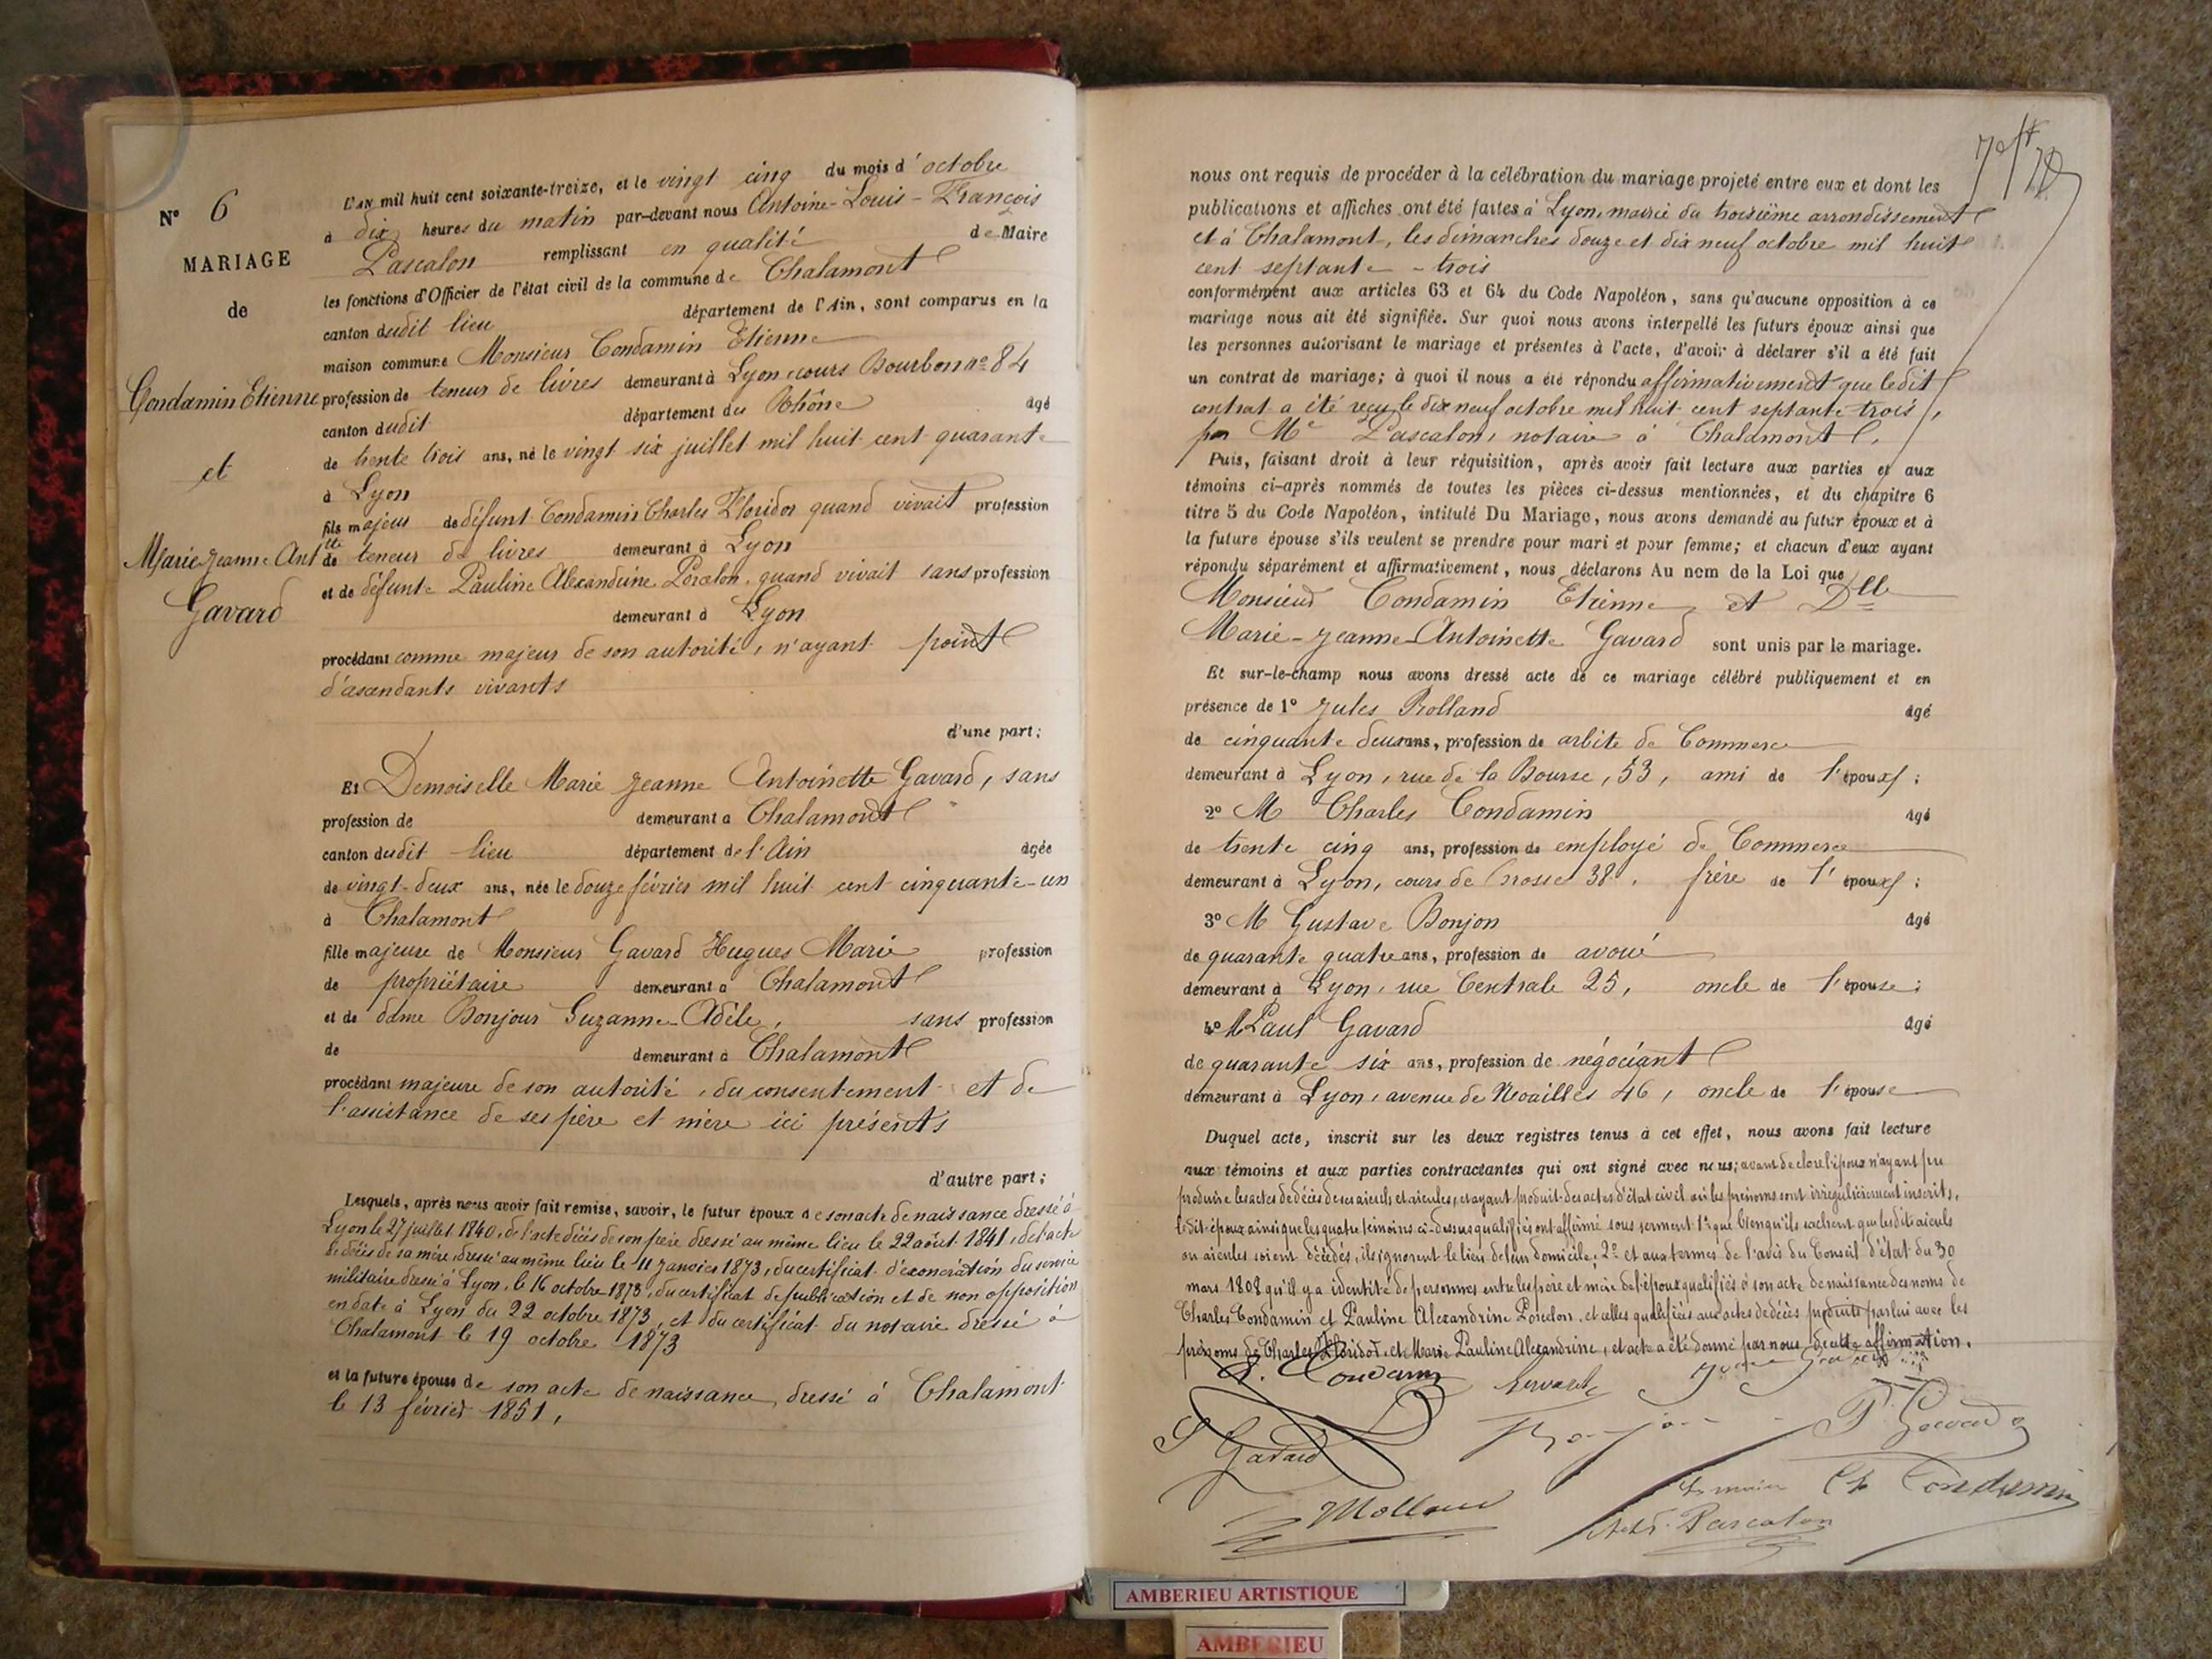 N° 6
MARIAGE
de
Condamin Etienne
et
Marie Jeanne Antte
Gavard
L'AN mil huit cent soixante-treize, et le vingt cinq du mois d'octobre
à dix heures du matin par-devant nous Antoine-Louis-François
Pascalon remplissant en qualité de Maire
les fonctions d'Officier de l'état civil de la commune de Chalamont
canton dudit lieu département de l'Ain, sont comparus en la
maison commune Monsieur Condamin Etienne
profession de teneur de livres demeurant à Lyon cours Bourbon n° 84
canton dudit département du Rhône âgé
de trente trois ans, né le vingt six juillet mil huit cent quarante
à Lyon
fils majeur de défunt Condamin Charles Floridor quand vivait profession
de teneur de livres demeurant à Lyon
et de défunte Pauline Alexandrine Porcelon quand vivait sans profession
demeurant à Lyon
procédant comme majeur de son autorité, n'ayant point
d'ascendants vivants
d'une part;
Et Demoiselle Marie Jeanne Antoinette Gavard, sans
profession de demeurant à Chalamont
canton dudit lieu département de l'Ain âgée
de vingt-deux ans, née le douze février mil huit cent cinquante-un
à Chalamont
fille majeure de Monsieur Gavard Hugues Marie profession
de propriétaire demeurant à Chalamont
et de dame Bonjour Suzanne-Adèle, sans profession
de demeurant à Chalamont
procédant majeure de son autorité, du consentement et de
l'assistance de ses père et mère ici présents
d'autre part;
Lesquels, après nous avoir fait remise, savoir, le futur époux de son acte de naissance dressé à
Lyon le 27 juillet 1840, de l'acte décès de son père dressé au même lieu le 22 août 1841, de l'acte
de décès de sa mère, dressé au même lieu le 11 janvier 1873, du certificat d'exonération du service
militaire dressé à Lyon, le 16 octobre 1873, du certificat de publication et de non opposition
en date à Lyon du 22 octobre 1873, et du certificat du notaire dressé à
Chalamont le 19 octobre 1873
et la future épouse de son acte de naissance, dressé à Chalamont
le 13 février 1851,
nous ont requis de procéder à la célébration du mariage projeté entre eux et dont les
publications et affiches ont été faites à Lyon, mairie du troisième arrondissement
et à Chalamont, les dimanches douze et dix neuf octobre mil huit
cent septante-trois
conformément aux articles 63 et 64 du Code Napoléon, sans qu'aucune opposition à ce
mariage nous ait été signifiée. Sur quoi nous avons interpellé les futurs époux ainsi que
les personnes autorisant le mariage et présentes à l'acte, d'avoir à déclarer s'il a été fait
un contrat de mariage; à quoi il nous a été répondu affirmativement que ledit
contrat a été reçu le dix neuf octobre mil huit cent septante trois,
par Me Pascalon, notaire à Chalamont.
Puis, faisant droit à leur réquisition, après avoir fait lecture aux parties et aux
témoins ci-après nommés de toutes les pièces ci-dessus mentionnées, et du chapitre 6
titre 5 du Code Napoléon, intitulé Du Mariage, nous avons demandé au futur époux et à
la future épouse s'ils veulent se prendre pour mari et pour femme; et chacun d'eux ayant
répondu séparément et affirmativement, nous déclarons Au nom de la Loi que
Monsieur Condamin Etienne et Dlle
Marie-Jeanne-Antoinette Gavard sont unis par le mariage.
Et sur-le-champ nous avons dressé acte de ce mariage célébré publiquement et en
présence de 1° Jules Rolland âgé
de cinquante deux ans, profession de arbite de Commerce
demeurant à Lyon, rue de la Bourse, 53, ami de l'époux;
2° M Charles Condamin âgé
de trente cinq ans, profession de employé de Commerce
demeurant à Lyon, cours de Brosses 38, frère de l'époux;
3° M Gustave Bonjon âgé
de quarante quatre ans, profession de avoué
demeurant à Lyon, rue Centrale 25, oncle de l'épouse;
4° M Paul Gavard âgé
de quarante six ans, profession de négociant
demeurant à Lyon, avenue de Noailles 46, oncle de l'épouse
Duquel acte, inscrit sur les deux registres tenus à cet effet, nous avons fait lecture
aux témoins et aux parties contractantes qui ont signé avec nous; avant de clore l'époux n'ayant pu
produire les actes de décès de ses aieuls et aieules, et ayant produit des actes d'état civil où les prénoms sont irrégulièrement inscrits,
ledit époux ainsi que les quatre témoins ci-dessus qualifiés ont affirmé sous serment 1° que bien qu'ils sachent que lesdits aieuls
ou aieules soient décédés, ils ignorent le lieu de leur domicile; 2° et aux termes de l'avis du Conseil d'état du 30
mars 1808 qu'il y a identité de personnes entre les père et mère de l'époux qualifiés à son acte de naissance des noms de
Charles Condamin et Pauline Alexandrine Porcelon, et celles qualifiées aux actes de décès produits par lui avec les
prénoms de Charles Floridor et Marie Pauline Alexandrine, et acte a été donné par nous de cette affirmation.
E. Condamin
S Gavard
P. Gavard
Ch Condamin
Le maire
Pascalon
AMBERIEU ARTISTIQUE
AMBERIEU